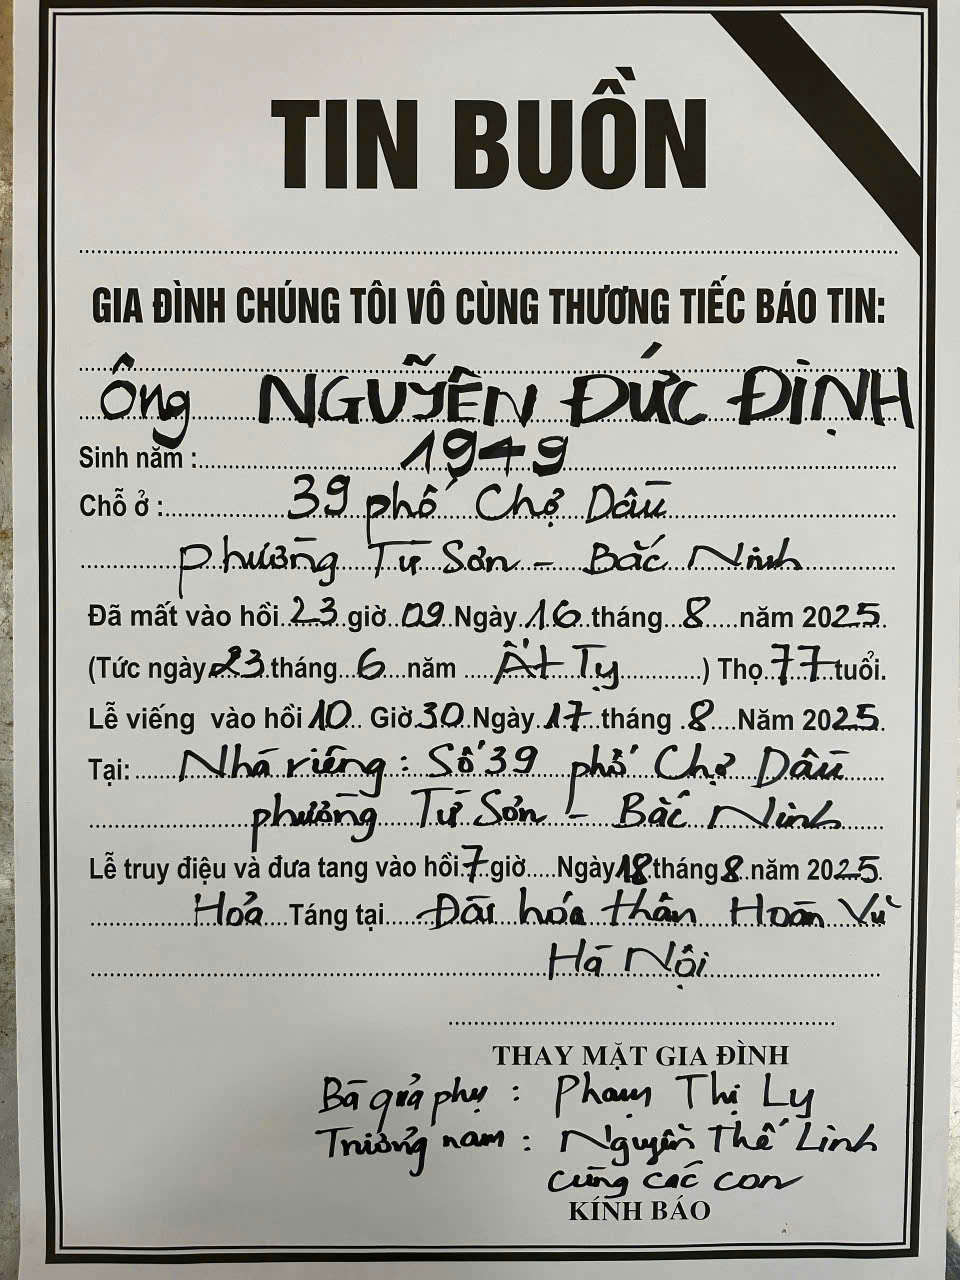 TIN BUỒN
GIA ĐÌNH CHÚNG TÔI VÔ CÙNG THƯƠNG TIẾC BÁO TIN:
Ông NGUYỄN ĐỨC ĐỊNH
Sinh năm : 1949
Chỗ ở : 39 phố Chợ Dầu
phường Từ Sơn - Bắc Ninh
Đã mất vào hồi 23 giờ 09 Ngày 16 tháng 8 năm 2025
(Tức ngày 23 tháng 6 năm Ất Tỵ ) Thọ 77 tuổi.
Lễ viếng vào hồi 10 Giờ 30 Ngày 17 tháng 8 Năm 2025
Tại: Nhà riêng : Số 39 phố Chợ Dầu
phường Từ Sơn - Bắc Ninh
Lễ truy điệu và đưa tang vào hồi 7 giờ Ngày 18 tháng 8 năm 2025
Hỏa Táng tại Đài hóa thân Hoàn Vũ
Hà Nội
THAY MẶT GIA ĐÌNH
Bà quả phụ : Phạm Thị Ly
Trưởng nam : Nguyễn Thế Linh
cùng các con
KÍNH BÁO